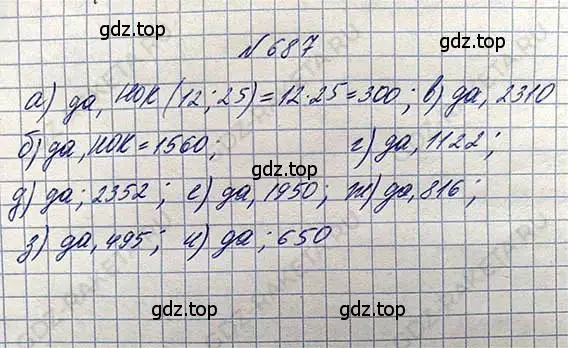 №687
а) да, НОК (12; 25) = 12·25 = 300; в) да, 2310
б) да, НОК = 1560; г) да, 1122;
д) да; 2352; е) да, 1950; ж) да, 816;
з) да, 495; и) да; 650
gdz.top
gdz.top
gdz.top
gdz.top
gdz.top
gdz.top
gdz.top